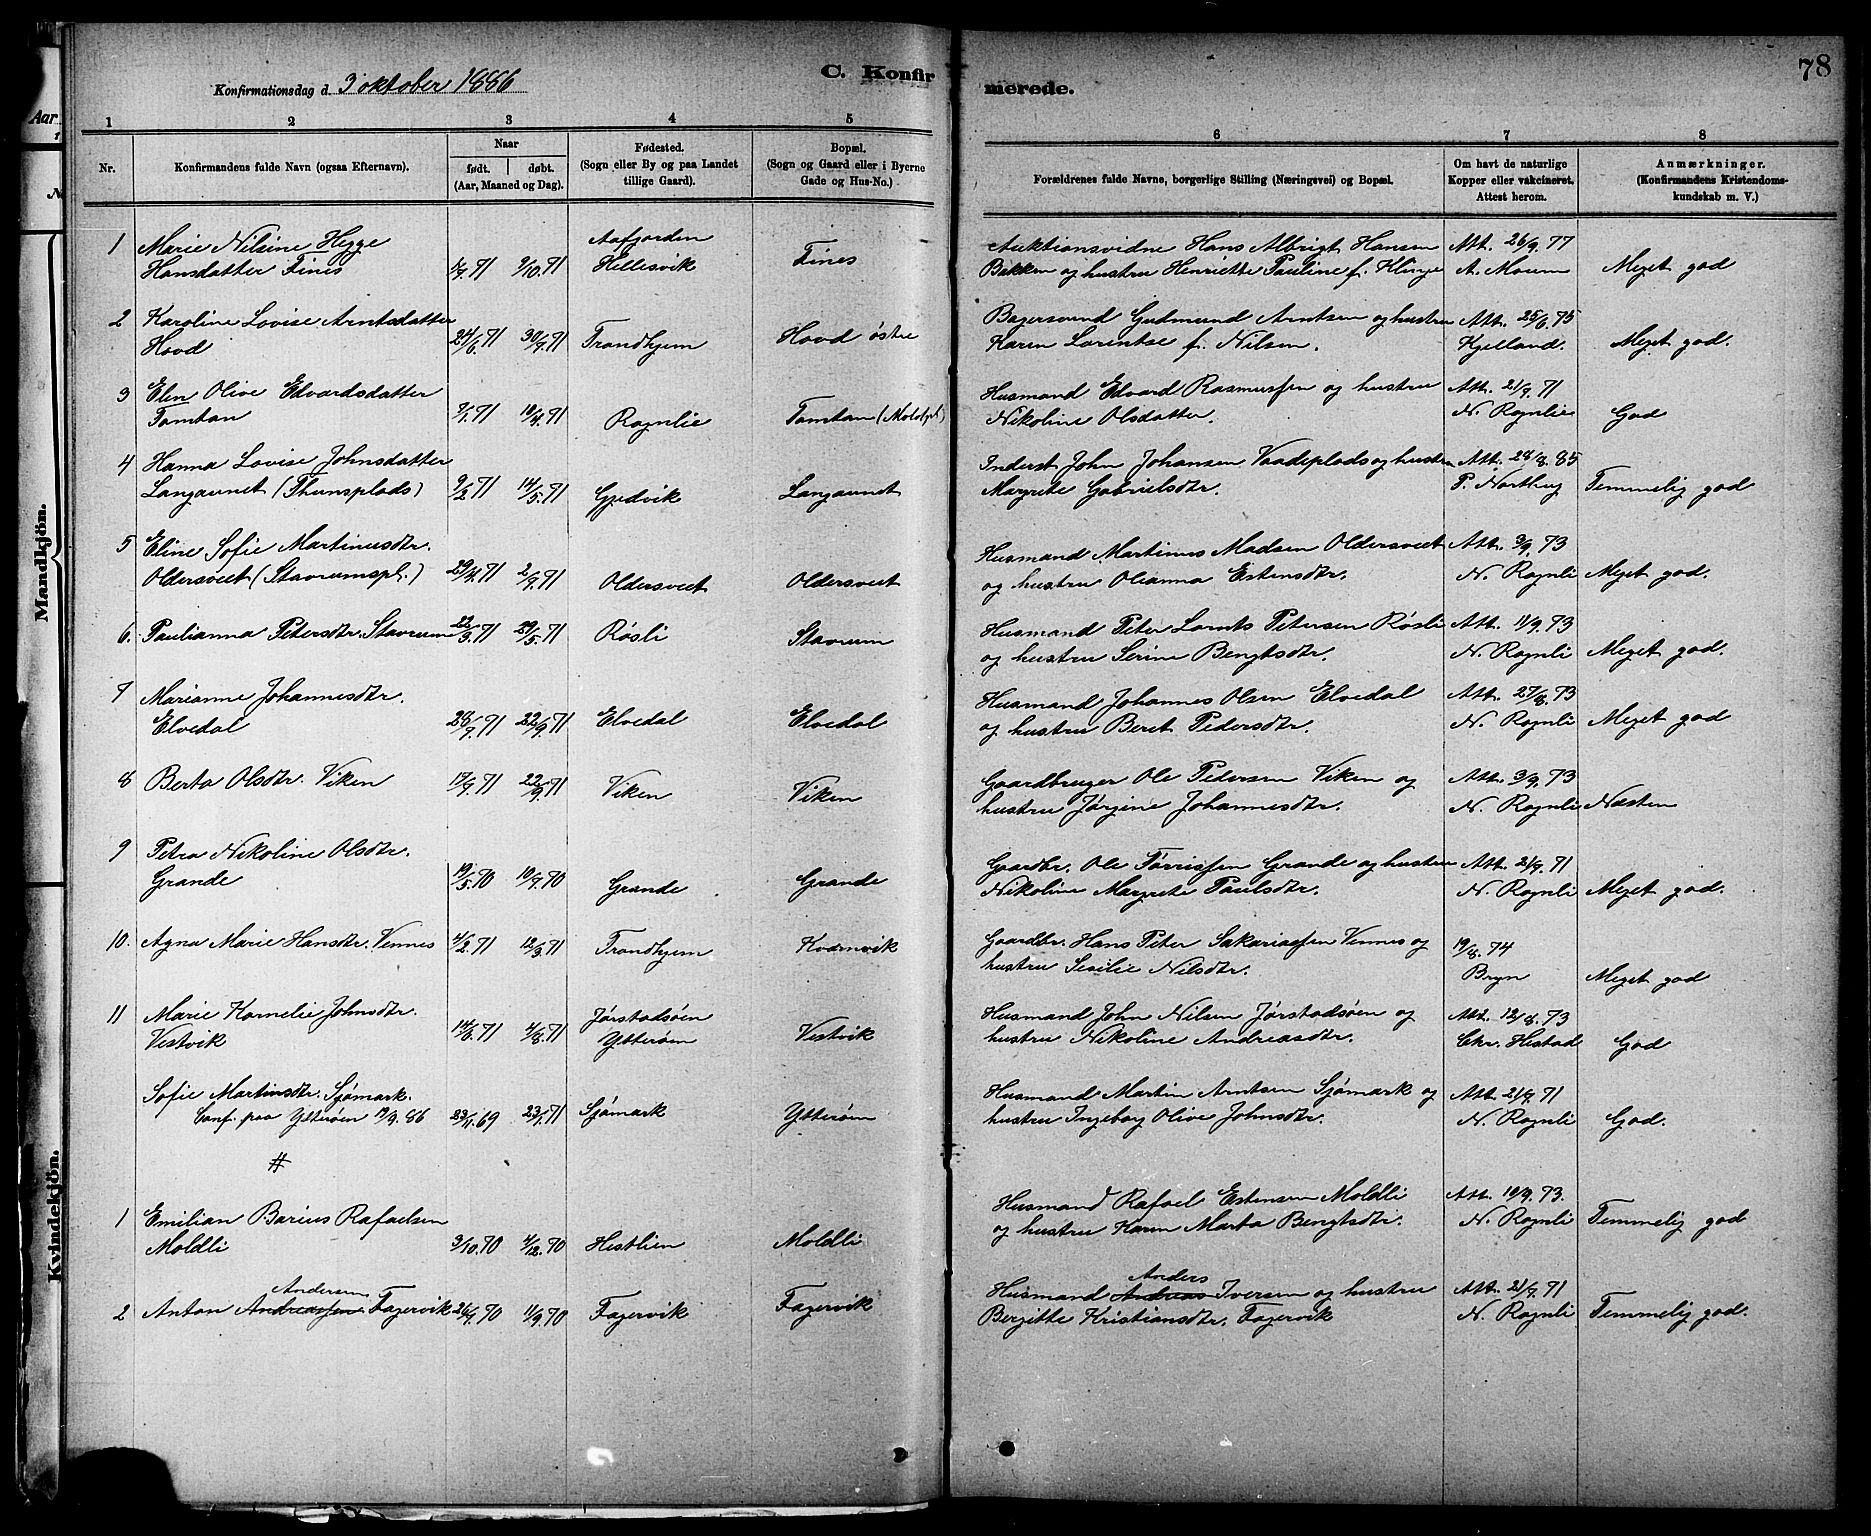 Konfirmationsdag d. 3 oktober 1886
C. Konfirmerede.
78
Aar
Mandkjön.
Kvindekjön.
1 2 3 4 5 6 7 8
Nr.
Konfirmandens fulde Navn (ogsaa Efternavn).
Naar
født. døbt.
(Aar, Maaned og Dag).
Fødested.
(Sogn eller By og paa Landet
tillige Gaard).
Bopæl.
(Sogn og Gaard eller i Byerne
Gade og Hus-No.)
Forældrenes fulde Navne, borgerlige Stilling (Næringsvei) og Bopæl.
Om havt de naturlige
Kopper eller vakcineret.
Attest herom.
Anmærkninger.
(Konfirmandens Kristendoms-
kundskab m. V.)
1 Marie Nilsine Hegge Aafjorden Auktionsvidne Hans Albrigt Hansen Att. 26/9. 77
Hansdatter Fines 1/9. 71 9/10. 71 Hellesvik Fines Bakken og hustru Henriette Pauline f. Klinge A. Moum Meget god
2 Karoline Lovise Arntsdatter Bagersvend Gudmund Arntsen og hustru Att. 25/6. 75
Hovd 24/6. 71 30/9. 71 Trondhjem Hovd østre Karen Lorentse f. Nilsen. Kjelland. Meget god.
3 Elen Olive Edvardsdatter Husmand Edvard Rasmussen og hustru Att. 21/9. 71
Tomtan 9/1. 71 10/4. 71 Rognlie Tomtan (Moldpl.) Nikoline Olsdatter. N. Rognlie God
4 Hanna Lovise Johnsdatter Inderst John Johansen Vaadeplads og hustru Att. 28/8. 85
Langaunet (Thunsplads) 9/2. 71 14/5. 71 Gjedvik Langaunet Margrete Gabrielsdtr. P. Northug Temmelig god
5 Eline Sofie Martinusdtr. Husmand Martinus Madsen Oldersveet Att. 3/9. 73
Oldersveet (Stavrumspl.) 29/4. 71 2/9. 71 Oldersveet Oldersveet og hustru Olianna Estensdtr. N. Rognli Meget god.
6. Paulianna Petersdtr. Stavrum 22/3. 71 29/5. 71 Røsli Stavrum Husmand Peter Lornts Petersen Røsli Att. 11/9. 73
og hustru Serine Bengtsdtr. N. Rognli Meget god.
7 Marianne Johannesdtr. Husmand Johannes Olsen Elvedal Att. 27/8. 73
Elvedal 28/7. 71 22/9. 71 Elvedal Elvedal og hustru Beret Pedersdtr. N. Rognli Meget god
8 Berta Olsdtr. Viken 17/7. 71 22/9. 71 Viken Viken Gaardbruger Ole Pedersen Viken og Att. 3/9. 73
hustru Jørgine Johannesdtr. N. Rognli Næsten
9 Petra Nikoline Olsdtr. Gaardbr. Ole Tørrissen Grande og hustru Att. 21/9. 71
Grande 19/5. 70 10/7. 70 Grande Grande Nikoline Margrete Paulsdtr. N. Rognli Meget god.
10. Agna Marie Hansdtr. Vennes 4/2. 71 12/3. 71 Trondhjem Kvamvik Gaardbr. Hans Peter Sakariassen Vennes og 19/8. 74
hustru Sesilie Nilsdtr. Bryn Meget god
11 Marie Kornelie Johnsdtr. Jørstadsøen Husmand John Nilsen Jørstadsøen og Att. 12/8. 73
Vestvik 14/3. 71 4/8. 71 Ytterøen Vestvik hustru Nikoline Andreasdtr. Chr. Hestad God
Sofie Martinsdtr. Sjømark. Husmand Martin Arntsen Sjømark og Att. 21/9. 71
Conf. paa Ytterøen 19/9. 86 23/1. 69 23/1. 71 Sjømark Ytterøen hustru Ingeborg Olive Johnsdtr. N. Rognli God.
#
1 Emilian Barius Rafaelsen Husmand Rafael Estensen Moldli Att. 10/9. 73.
Moldli 3/10. 70 4/12. 70 Hestlien Moldli og hustru Karen Marta Bengtsdtr. N. Rognli Temmelig god
Andersen Anders
2 Anton Andreassen Fagervik 26/7. 70 11/9. 70 Fagervik Fagervik Husmand Andreas Iversen og hustru Att. 21/9. 71
Bergitte Kristiansdtr. Fagervik N. Rognli Temmelig god.